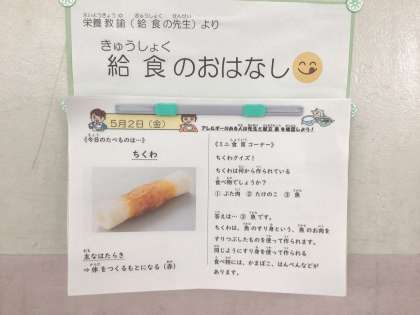 栄養教諭(給食の先生)より
給食のおはなし
5月2日(金)
アレルギーがある人は先生と献立表を確認しよう!
《今日のたべものは…》
ちくわ
主なはたらき
⇒体をつくるもとになる(赤)
《ミニ食育コーナー》
ちくわクイズ!
ちくわは何から作られている
食べ物でしょうか?
① ぶた肉 ② たけのこ ③ 魚
答えは… ③ 魚です。
ちくわは、魚のすり身という、魚のお肉を
すりつぶしたものを使って作られます。
同じようにすり身を使って作られる
食べ物には、かまぼこ、はんぺんなどが
あります。